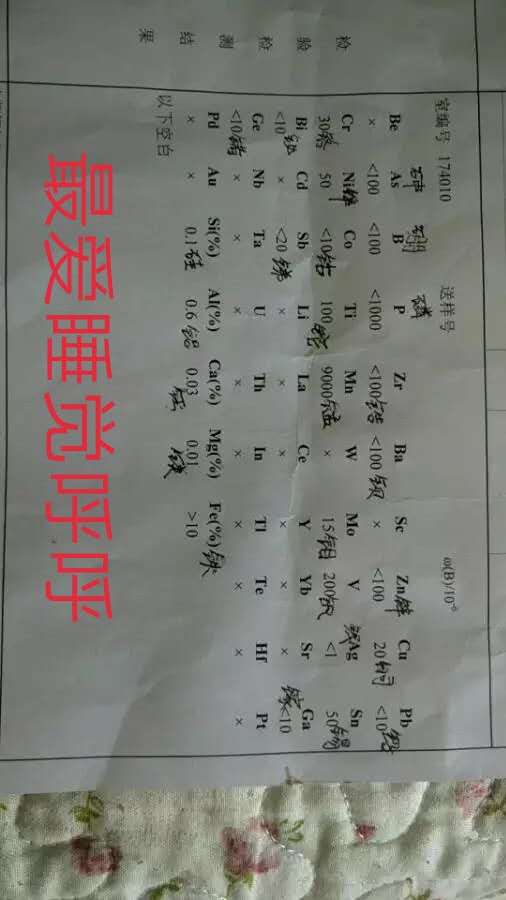 室编号 174010 送样号 ω(B)/10⁻⁶
砷 硼 磷
Be As B P Zr Ba Sc Zn锌 Cu Pb
× <100 <100 <1000 <100锆 <100钡 × <100 20铜 <10铅
检
Cr Ni镍 Co Ti Mn W Mo V 银Ag Sn
30铬 50 <10钴 100 9000锰 × 15钼 200钒 <1 50锡
验
Bi Cd Sb Li La Ce Y Yb Sr Ga
<10铋 × <20锑 × × × × × × 镓<10
检
Ge Nb Ta U Th In Tl Te Hf Pt
<10锗 × × × × × × × × ×
测
Pd Au Si(%) Al(%) Ca(%) Mg(%) Fe(%)铁
结
× × 0.1硅 0.6铝 0.03钙 0.01镁 >10
果
以下空白
最爱睡觉呼呼